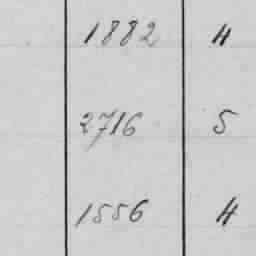 1882 4
2716 5
1556 4